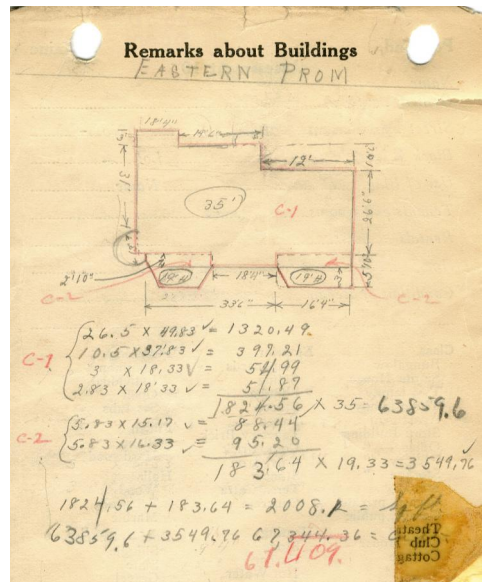 Remarks about Buildings
EASTERN PROM
18'4"
12'
31'
35'
C-1
26'6"
2'10"
19'4"
18'4"
19'4"
C-2
C-2
33'6"
16'4"
26.5 X 49.83 ✓ = 1320.49
C-1
10.5 X 37.83 ✓ = 397.21
3 X 18.33 ✓ = 54.99
2.83 X 18.33 ✓ = 51.87
1824.56 X 35 = 63859.6
5.83 X 15.17 ✓ = 88.44
C-2
5.83 X 16.33 ✓ = 95.20
183.64 X 19.33 = 3549.76
1824.56 + 183.64 = 2008.2 = sq ft
63859.6 + 3549.76 67,344.36 = C
67.409.
Theat
Club
Cottag